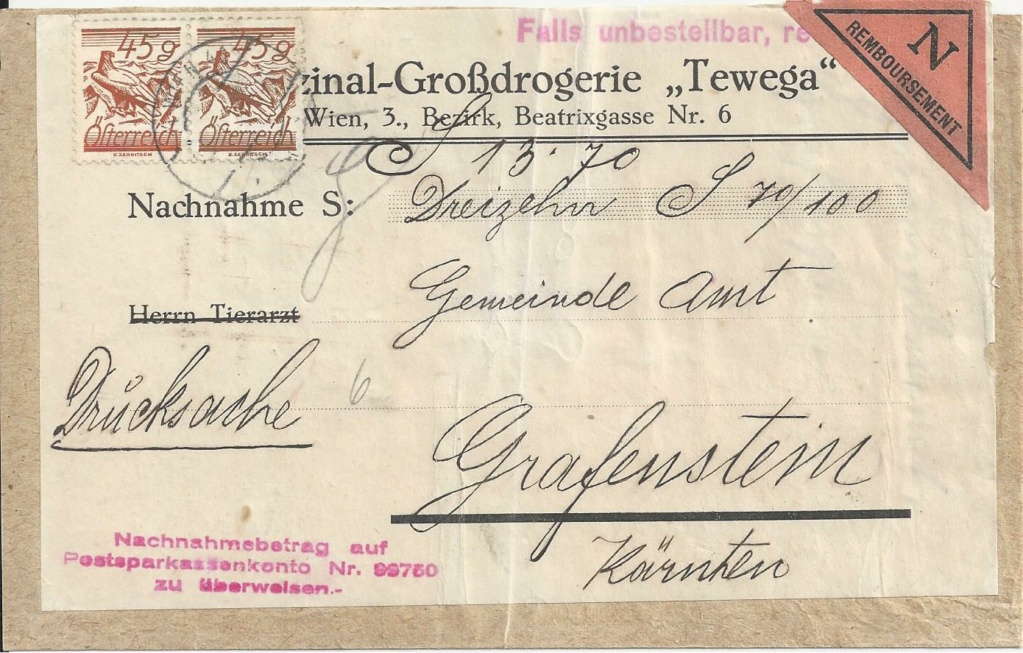 Falls unbestellbar, re
45g 45g
Österreich Österreich
zinal-Großdrogerie „Tewega“
Wien, 3., Bezirk, Beatrixgasse Nr. 6
N
REMBOURSEMENT
S 13·70
Nachnahme S: Dreizehn S 70/100
Gemeinde Amt
Herrn Tierarzt
Drucksache 6
Grafenstein
Kärnten
Nachnahmebetrag auf
Postsparkassenkonto Nr. 99750
zu überweisen.-